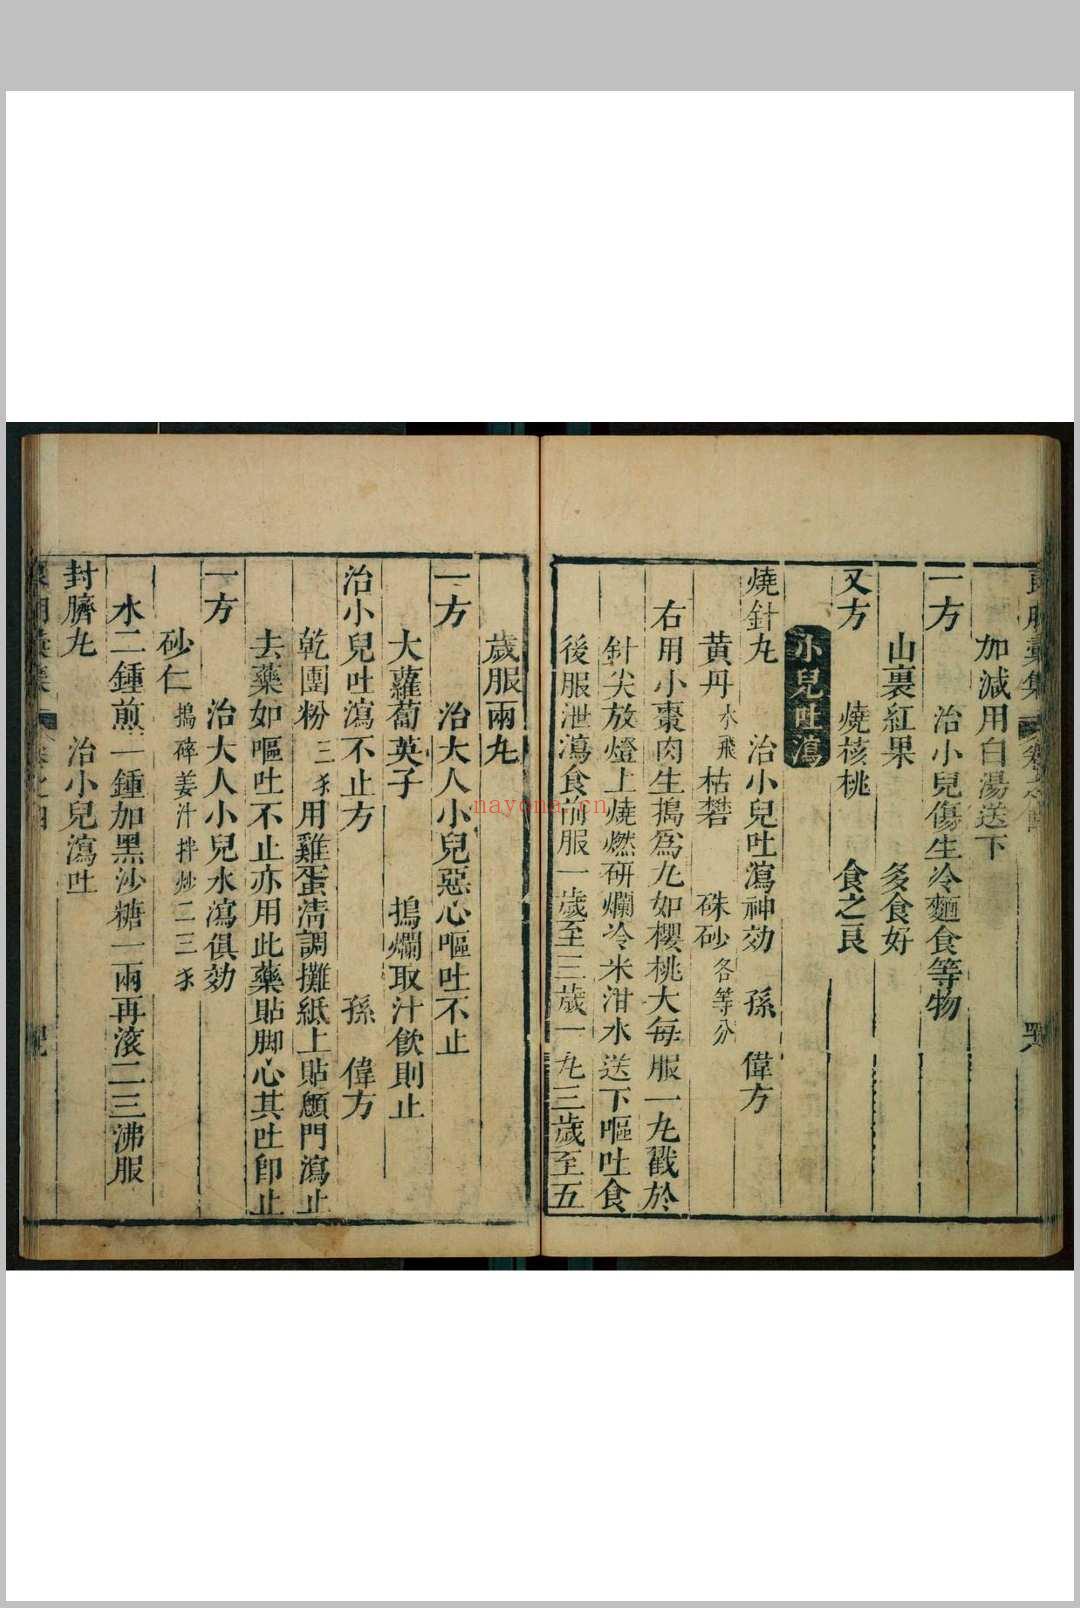 加減用白湯送下
一方　治小兒傷生冷麵食等物
山裏紅果　多食好
又方　燒核桃　食之良
小兒吐瀉
燒針丸　治小兒吐瀉神効　孫　偉方
黃丹水飛　枯礬　硃砂各等分
右用小棗肉生搗爲丸如櫻桃大每服一丸戳於
針尖放燈上燒燃研爛冷米泔水送下嘔吐食
後服泄瀉食前服一歲至三歲一丸三歲至五
歲服兩丸
一方　治大人小兒惡心嘔吐不止
大蘿蔔英子　搗爛取汁飲則止
治小兒吐瀉不止方　孫　偉方
乾團粉三錢用雞蛋淸調攤紙上貼顖門瀉止
去藥如嘔吐不止亦用此藥貼脚心其吐即止
一方　治大人小兒水瀉俱効
砂仁搗碎姜汁拌炒二三錢
水二鍾煎一鍾加黑沙糖一兩再滚二三沸服
封臍丸　治小兒瀉吐
nayona.cn